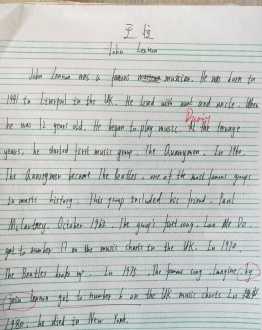 John Lennon
John Lennon was a famous musician. He was born in
1941 in Liverpool in the UK. He lived with aunt and uncle. When
During
he was 12 years old. He began to play music. At the teenage
years, he started first music group. The Quarrymen. In 1960.
The Quarrymen became The Beatles. one of the most famous groups
in music history. This group included his friend. Paul
McCartney. October 1962. The group's first song. Love Me Do.
got to number 17 on the music charts in the UK. In 1970.
The Beatles broke up. In 1975. The famous song. Imagine. by
John Lennon got to number 6 on the UK music charts. In
1980. he died in New York.